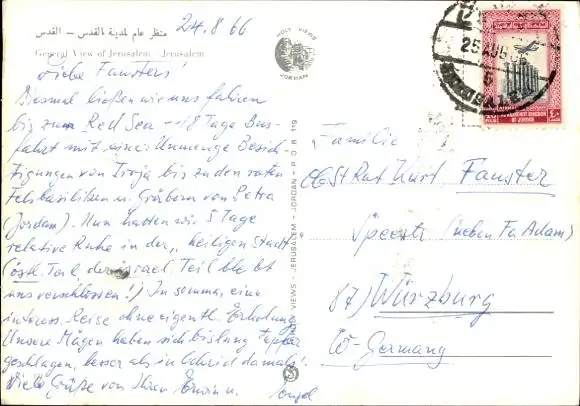 24.8.66
منظر عام لمدينة القدس – القدس
General View of Jerusalem - Jerusalem
HOLY VIEWS
JORDAN
Liebe Fausters!
Diesmal ließen wir uns fahren
bis zum Red Sea – 18 Tage Bus-
fahrt mit einer Unmenge Besich-
tigungen von Troja bis zu den roten
Felsbasiliken u. Gräbern von Petra
(Jordan). Nun hatten wir 5 Tage
relative Ruhe in der „heiligen Stadt"
(östl. Teil, der israel. Teil bleibt
uns verschlossen!) In summa, eine
interess. Reise ohne eigentl. Erholung.
Unsere Mägen haben sich bislang tapfer
geschlagen, besser als in Madrid damals!
Viele Grüße von Ihren Erwin u.
VIEWS - JERUSALEM - JORDAN - P.O.B. 119
25 AUG
JERUSALEM
HASHEMITE KINGDOM
OF JORDAN
Familie
ObStRat Kurt Fauster
(neben Fa Adam)
87) Würzburg
W-Germany